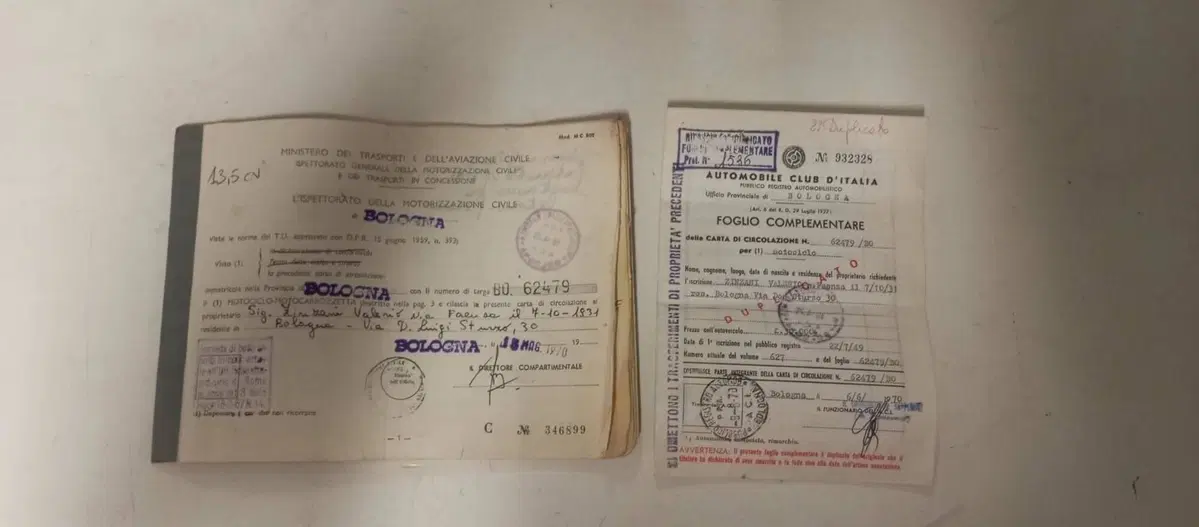 Mod. M C 802
13,5 CV
MINISTERO DEI TRASPORTI E DELL'AVIAZIONE CIVILE
ISPETTORATO GENERALE DELLA MOTORIZZAZIONE CIVILE
E DEI TRASPORTI IN CONCESSIONE
L'ISPETTORATO DELLA MOTORIZZAZIONE CIVILE
di BOLOGNA
Viste le norme del T.U. approvato con D.P.R. 15 giugno 1959, n. 393;
Visto (1)
la precedente carta di circolazione
immatricola nella Provincia di BOLOGNA con il numero di targa BO. 62479
il (1) MOTOCICLO-MOTOCARROZZETTA descritto nella pag. 3 e rilascia la presente carta di circolazione al
proprietario Sig. Zinzani Valerio n. a Faenza il 7-10-1931
residente di Bologna - Via D. Luigi Sturzo, 30
BOLOGNA, li 18 MAG. 1970 19
IL DIRETTORE COMPARTIMENTALE
- 1 -
C № 346899
2° Duplicato
FOGLIO COMPLEMENTARE
Prot. N° 1536
№ 932328
AUTOMOBILE CLUB D'ITALIA
PUBBLICO REGISTRO AUTOMOBILISTICO
Ufficio Provinciale di BOLOGNA
FOGLIO COMPLEMENTARE
della CARTA DI CIRCOLAZIONE N. 62479/BO
per (1) motociclo
Nome, cognome, luogo, data di nascita e residenza del proprietario richiedente
l'iscrizione ZINZANI VALERIO Faenza il 7/10/31
res. Bologna Via Don Sturzo 30
DUPLICATO
Prezzo dell'autoveicolo
Data di 1ª iscrizione nel pubblico registro 22/7/49
Numero attuale del volume 627 e del foglio 62479/BO
COSTITUISCE PARTE INTEGRANTE DELLA CARTA DI CIRCOLAZIONE N. 62479 /BO
Bologna li 6/6/ 1970
IL FUNZIONARIO DELL'A.C.I.
AVVERTENZA: Il presente foglio complementare è duplicato dell'originale che il
titolare ha dichiarato di aver smarrito e fa fede sino alla data dell'ultima annotazione
SI OMETTONO I TRASFERIMENTI DI PROPRIETA' PRECEDENTI